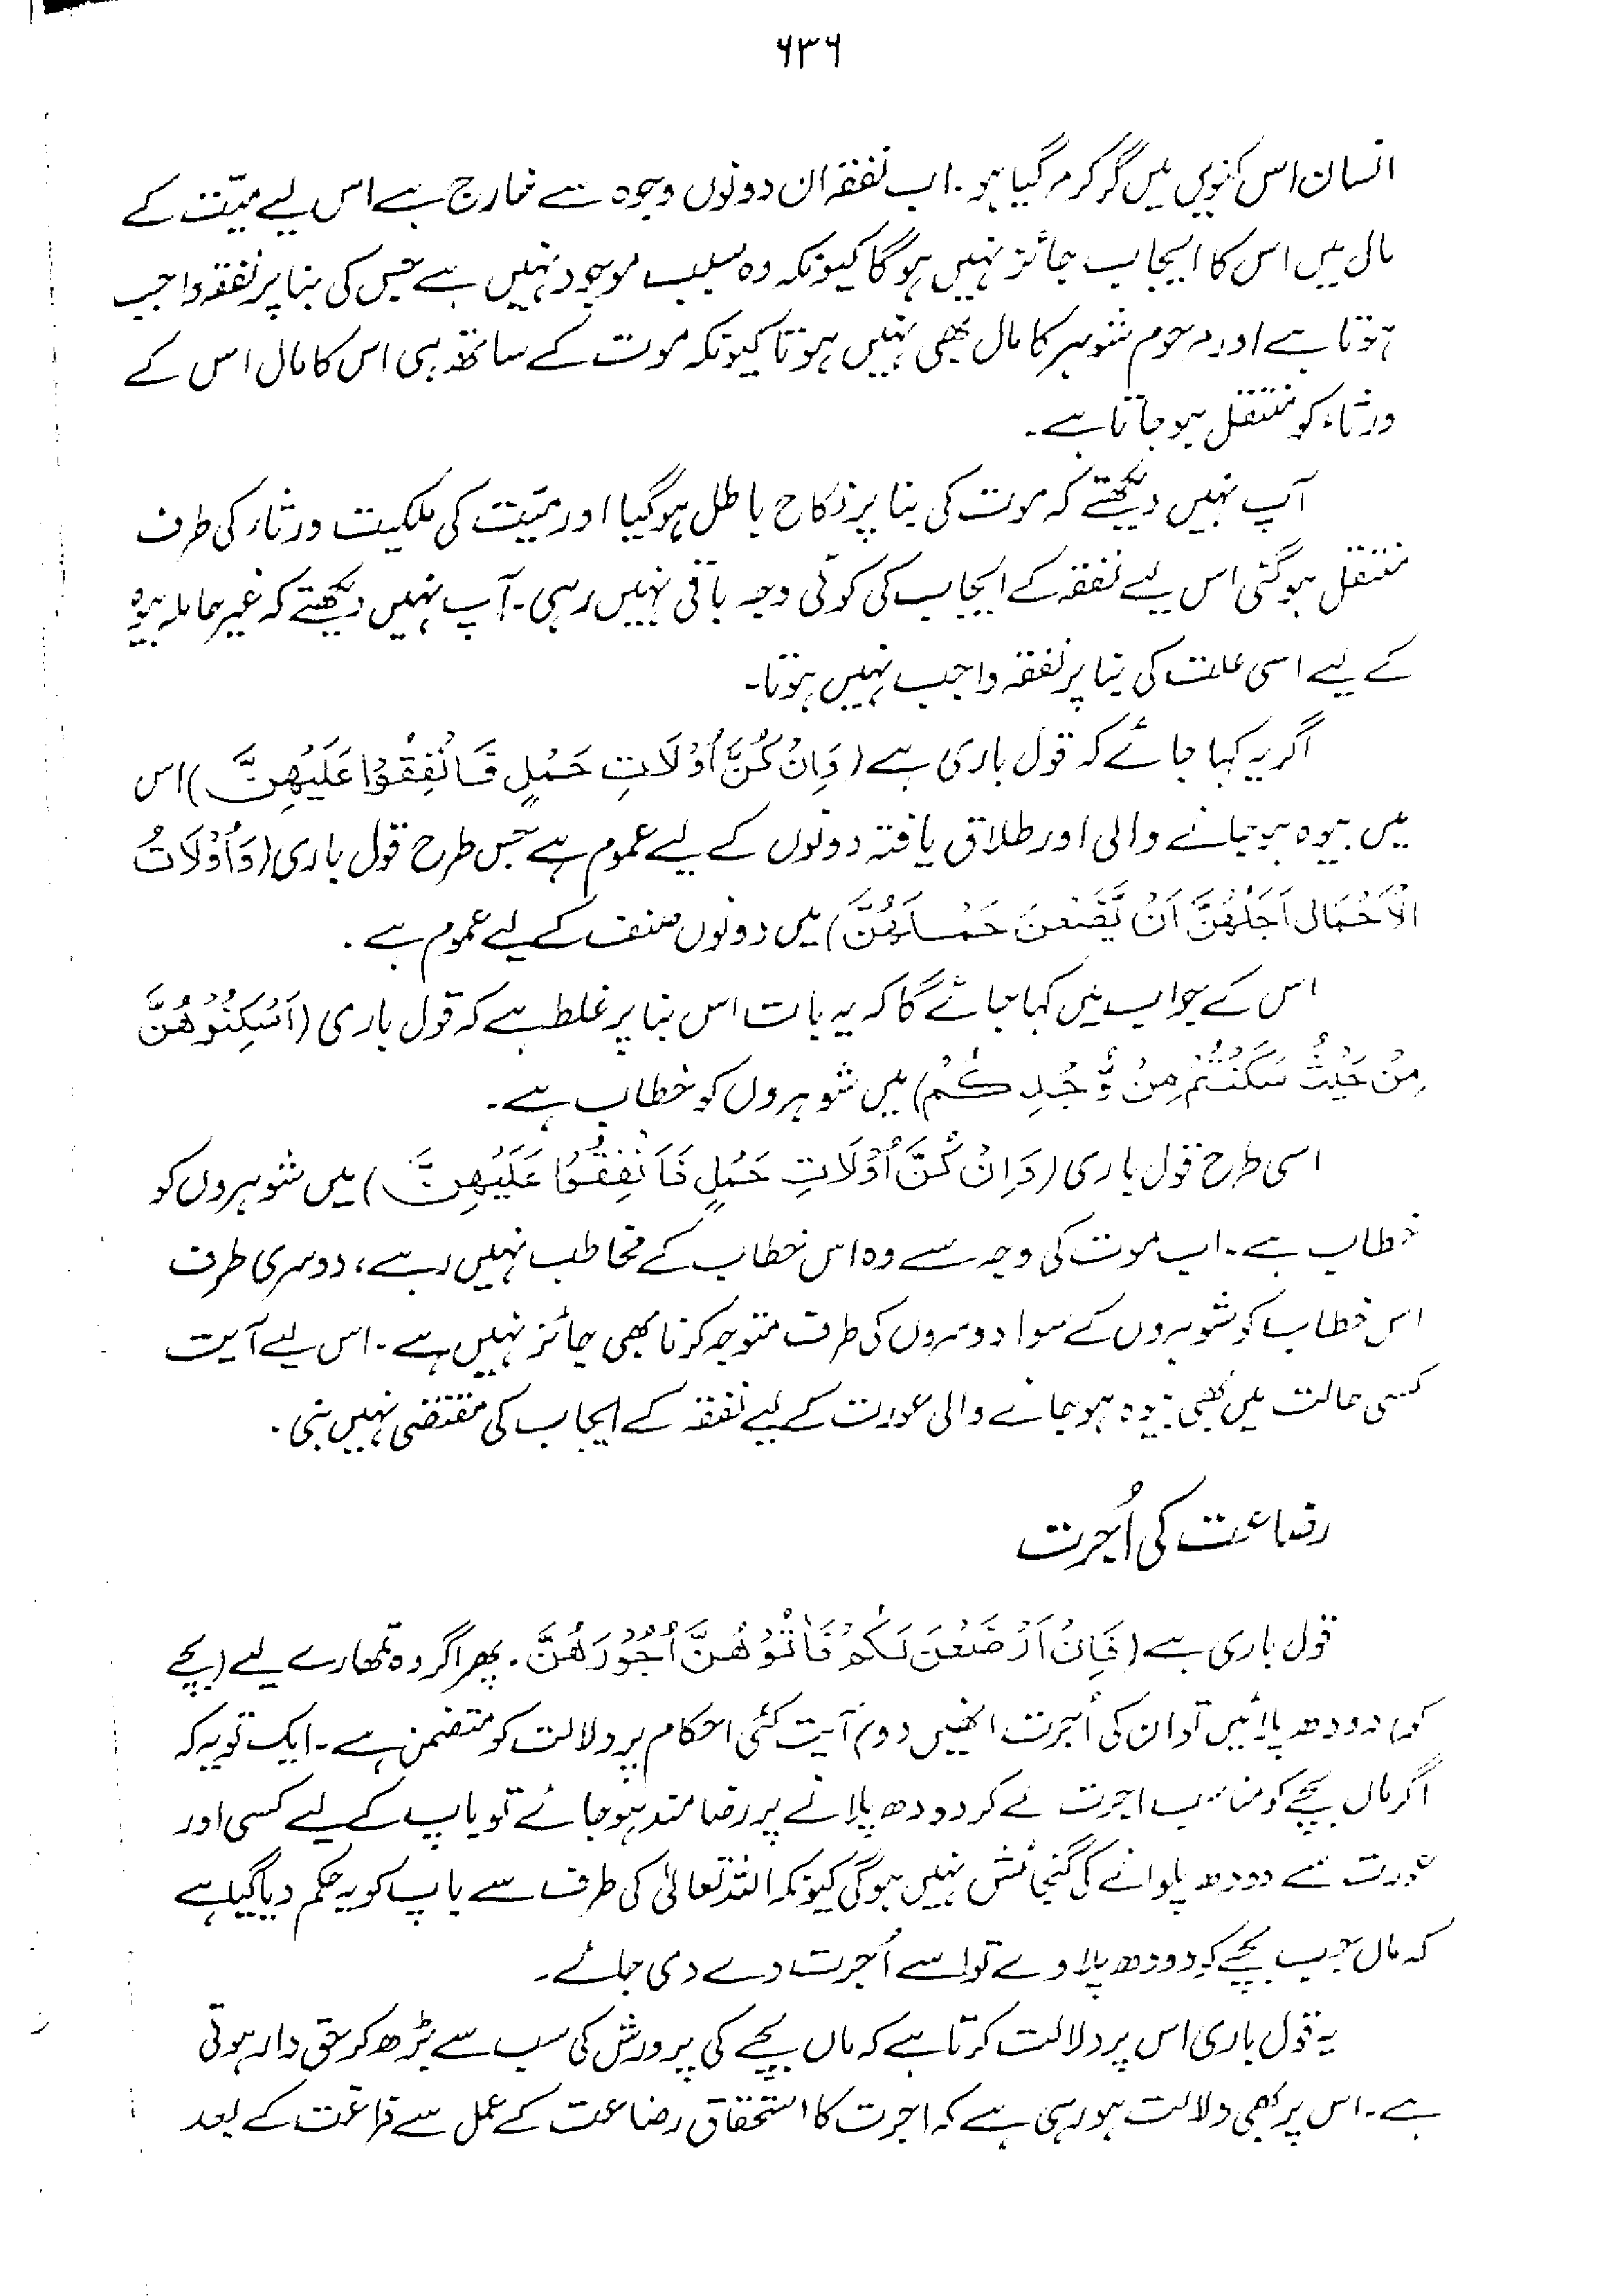 ۶۳۶
انسان اس کنویں میں گر کر مر گیا ہو۔ اب نفقہ ان دونوں وجوہ سے خارج ہے اس لیے میّت کے
مال میں اس کا ایجاب جائز نہیں ہوگا کیونکہ وہ سبب موجود نہیں ہے جس کی بنا پر نفقہ واجب
ہوتا ہے اور مرحوم شوہر کا مال بھی نہیں ہوتا کیونکہ موت کے ساتھ ہی اس کا مال اس کے
ورثاء کو منتقل ہو جاتا ہے۔
آپ نہیں دیکھتے کہ موت کی بنا پر نکاح باطل ہو گیا اور میّت کی ملکیت ورثاء کی طرف
منتقل ہو گئی اس لیے نفقہ کے ایجاب کی کوئی وجہ باقی نہیں رہی۔ آپ نہیں دیکھتے کہ غیر حاملہ بیوہ
کے لیے اسی علت کی بنا پر نفقہ واجب نہیں ہوتا۔
اگر یہ کہا جائے کہ قول باری ہے (وَاِنْ كُنَّ اُوْلَاتِ حَمْلٍ فَاَنْفِقُوْا عَلَيْهِنَّ) اس
میں بیوہ ہو جانے والی اور طلاق یافتہ دونوں کے لیے عموم ہے جس طرح قول باری (وَاُوْلَاتُ
الْاَحْمَالِ اَجَلُهُنَّ اَنْ يَّضَعْنَ حَمْلَهُنَّ) میں دونوں صنف کے لیے عموم ہے۔
اس کے جواب میں کہا جائے گا کہ یہ بات اس بنا پر غلط ہے کہ قول باری (اَسْكِنُوْهُنَّ
مِنْ حَيْثُ سَكَنْتُمْ مِنْ وُّجْدِكُمْ) میں شوہروں کو خطاب ہے۔
اسی طرح قول باری (وَاِنْ كُنَّ اُوْلَاتِ حَمْلٍ فَاَنْفِقُوْا عَلَيْهِنَّ) میں شوہروں کو
خطاب ہے۔ اب موت کی وجہ سے وہ اس خطاب کے مخاطب نہیں رہے، دوسری طرف
اس خطاب کو شوہروں کے سوا دوسروں کی طرف متوجہ کرنا بھی جائز نہیں ہے۔ اس لیے آیت
کسی حالت میں بھی بیوہ ہو جانے والی عورت کے لیے نفقہ کے ایجاب کی مقتضی نہیں بنی۔
رضاعت کی اُجرت
قول باری ہے (فَاِنْ اَرْضَعْنَ لَكُمْ فَاٰتُوْهُنَّ اُجُوْرَهُنَّ۔ پھر اگر وہ تمھارے لیے (بچے
کو) دودھ پلائیں تو ان کی اُجرت انھیں دو) آیت کئی احکام پر دلالت کو متضمن ہے۔ ایک تو یہ کہ
اگر ماں بچے کو مناسب اجرت لے کر دودھ پلانے پر رضامند ہو جائے تو باپ کے لیے کسی اور
عورت سے دودھ پلوانے کی گنجائش نہیں ہوگی کیونکہ اللہ تعالیٰ کی طرف سے باپ کو یہ حکم دیا گیا ہے
کہ ماں جب بچے کو دودھ پلاوے تو اسے اُجرت دے دی جائے۔
یہ قول باری اس پر دلالت کرتا ہے کہ ماں بچے کی پرورش کی سب سے بڑھ کر حق دار ہوتی
ہے۔ اس پر بھی دلالت ہو رہی ہے کہ اجرت کا استحقاق رضاعت کے عمل سے فراغت کے بعد